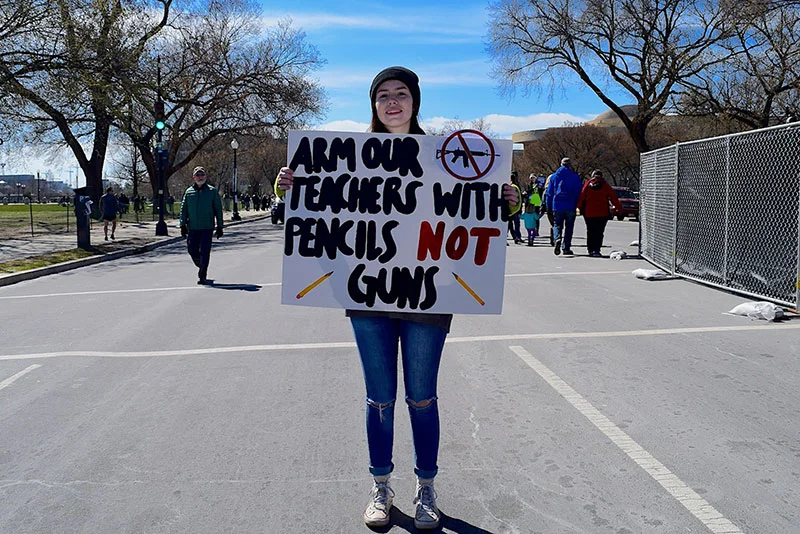 ARM OUR
TEACHERS WITH
PENCILS NOT
GUNS